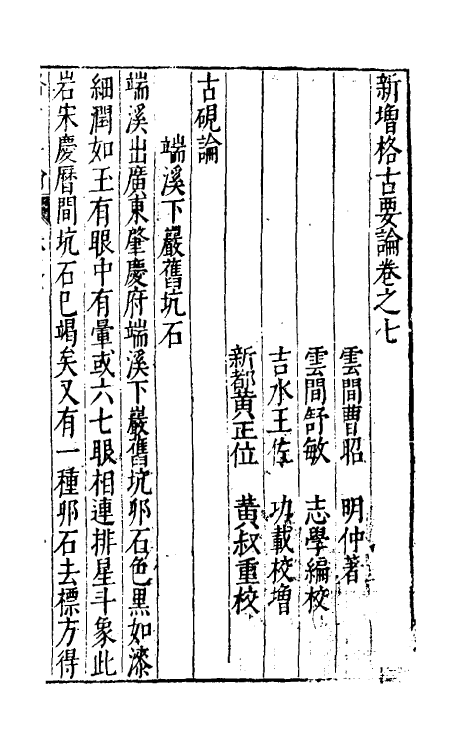 新增格古要論卷之七
雲間曹昭 明仲著
雲間舒敏 志學編校
吉水王佐 功載校增
新都黃正位 黃叔重校
古硯論
端溪下巖舊坑石
端溪出廣東肇慶府端溪下巖舊坑卵石色黑如漆
細潤如玉有眼中有暈或六七眼相連排星斗象此
岩宋慶曆間坑石已竭矣又有一種卵石去標方得